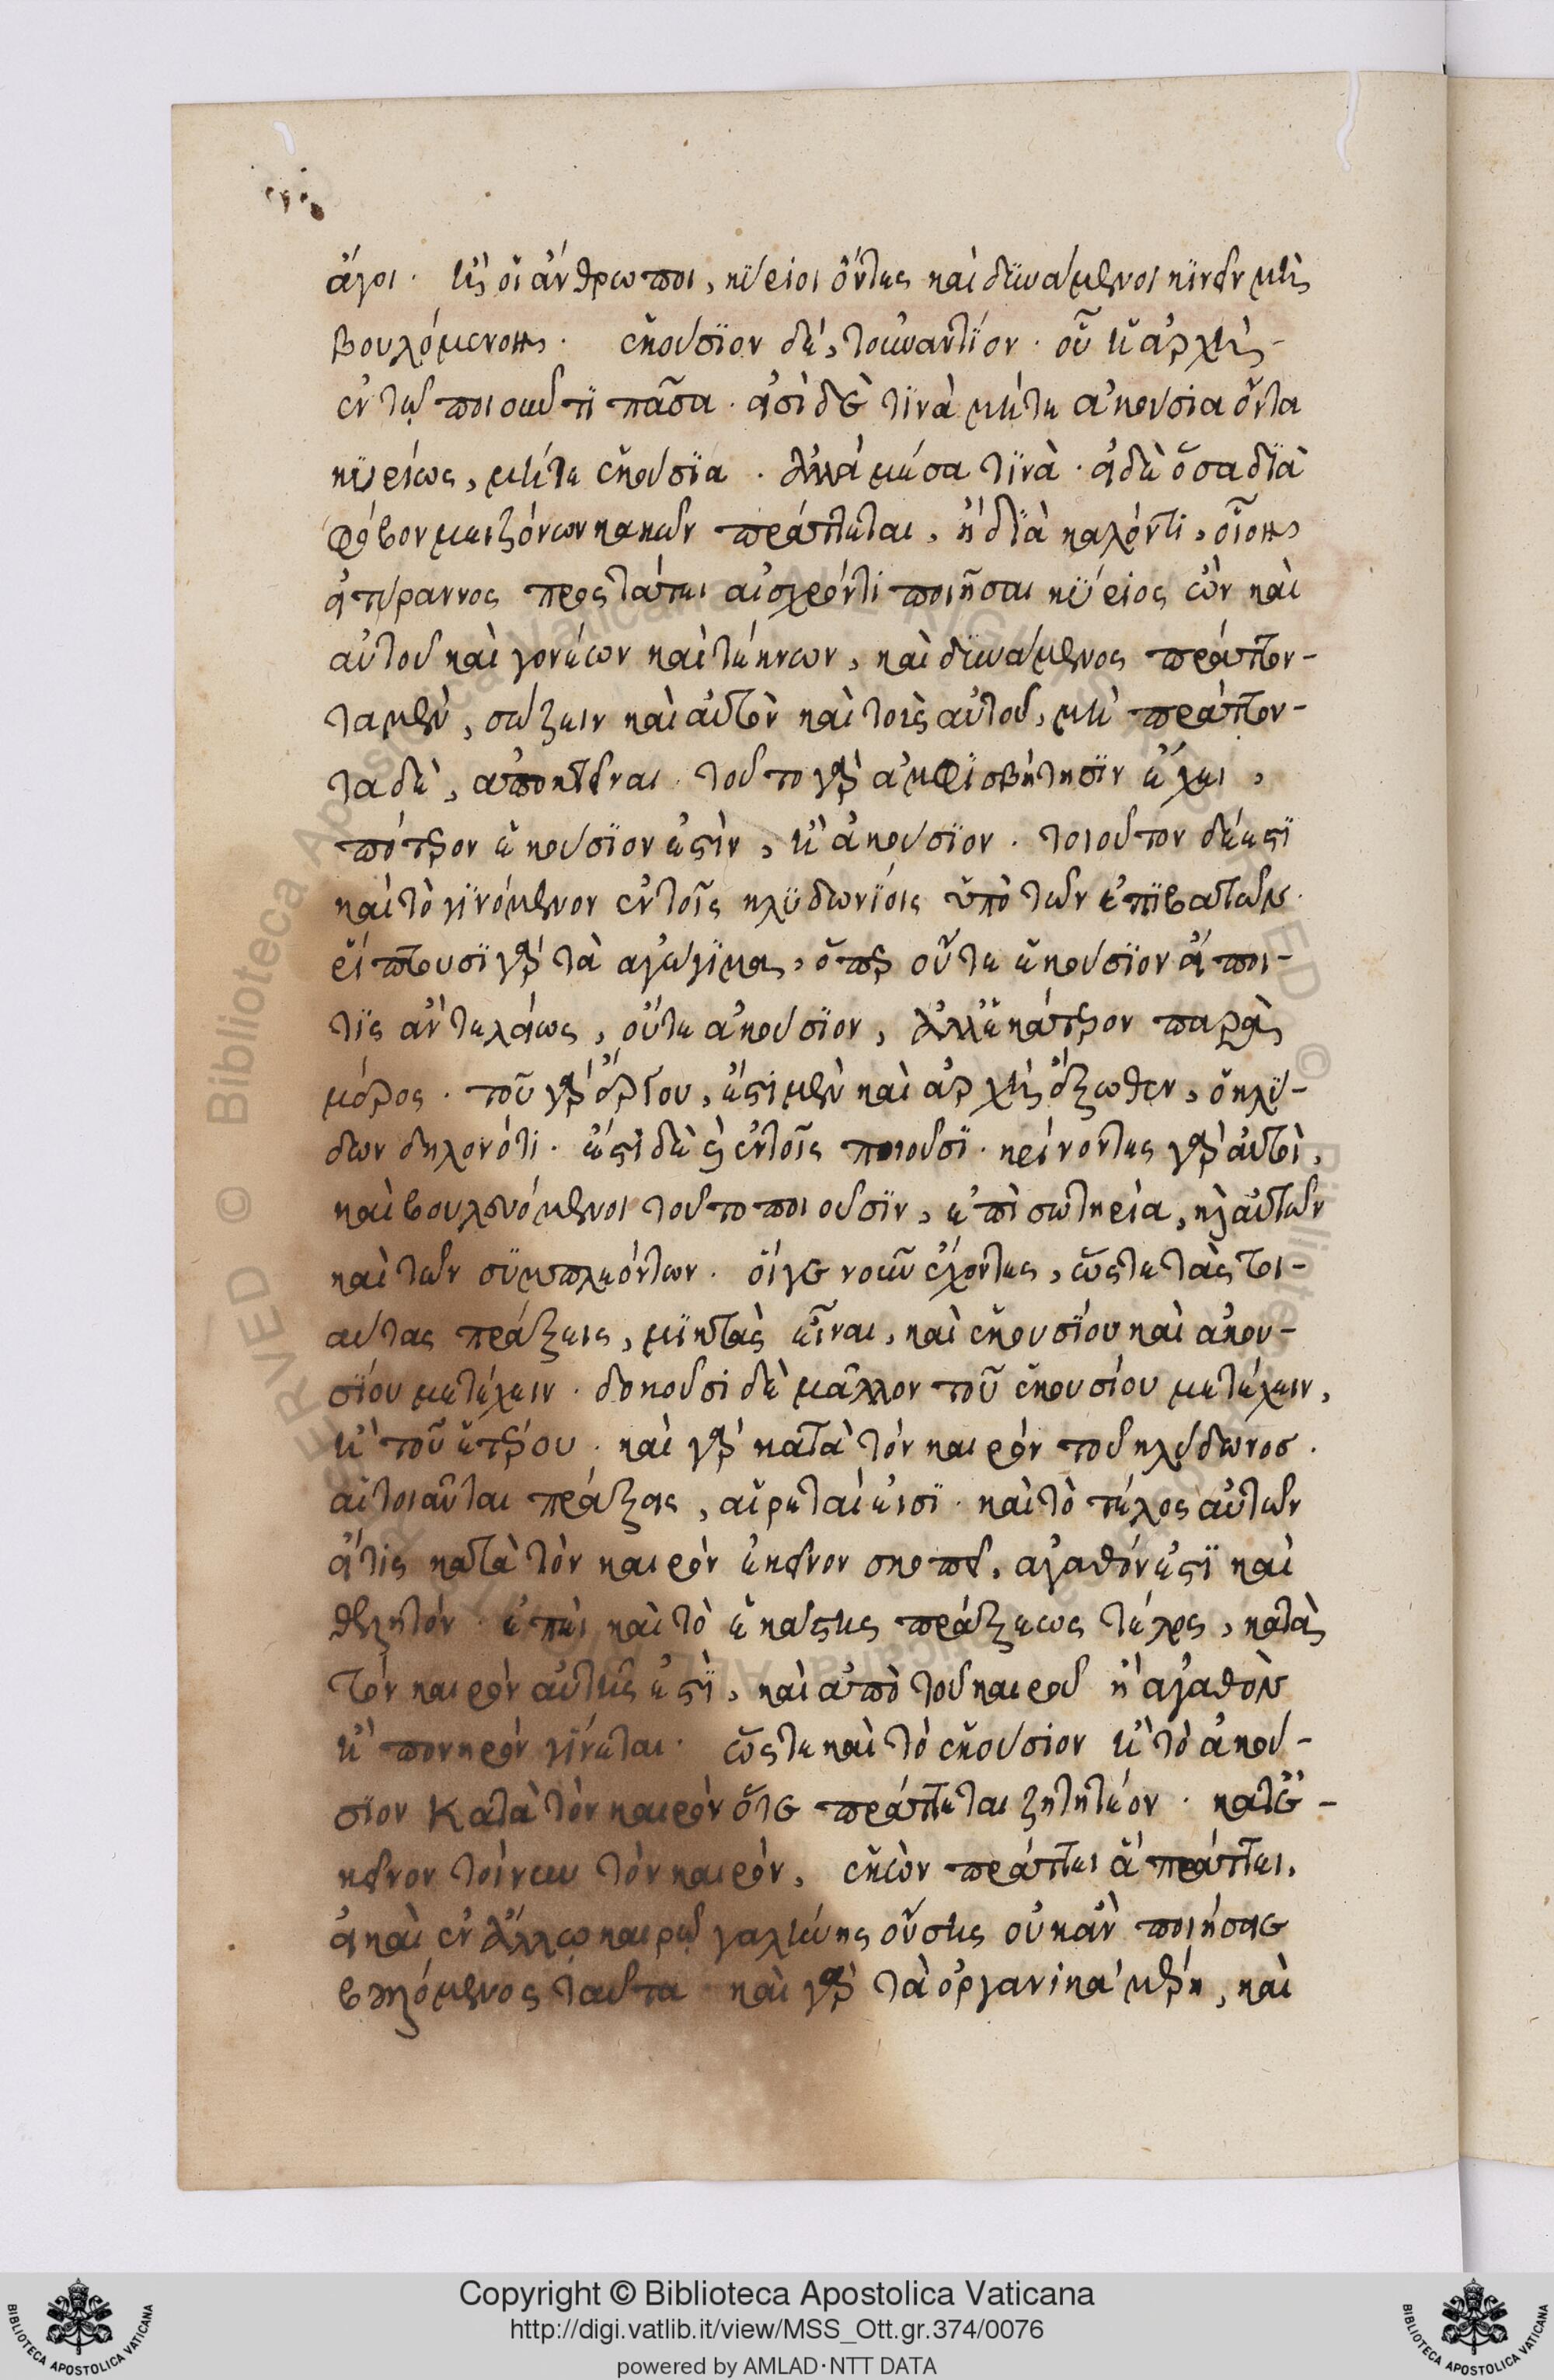 άγοι. ἢ οἱ ἄνθρωποι, κύριοι ὄντες καὶ δυνάμενοι κινεῖν μὴ
βουλόμενον. ἑκούσιον δέ, τουναντίον. οὗ ἡ ἀρχὴ
ἐν τῷ ποιοῦντι πᾶσα. εἰσὶ δέ τινα μήτε ἀκούσια ὄντα
κυρίως, μήτε ἑκούσια. ἀλλὰ μέσα τινά. εἰ δὲ ὅσα διὰ
φόβον μειζόνων κακῶν πράττεται, ἢ διὰ καλόν τι, οἷον
εἰ τύραννος προστάττει αἰσχρόν τι ποιῆσαι κύριος ὢν καὶ
αὐτοῦ καὶ γονέων καὶ τέκνων, καὶ δυνάμενος πράττον-
τα μὲν, σώζειν καὶ αὐτὸν καὶ τοὺς αὐτοῦ, μὴ πράττον-
τα δὲ, ἀποκτεῖναι. τοῦτο γὰρ ἀμφισβήτησιν ἔχει,
πότερον ἑκούσιον ἐστὶν, ἢ ἀκούσιον. τοιοῦτον δέ ἐστι
καὶ τὸ γινόμενον ἐν τοῖς κλυδωνίοις ὑπὸ τῶν ἐπιβατῶν.
ῥίπτουσι γὰρ τὰ ἀγώγιμα, ὅπερ οὔτε ἑκούσιον εἴποι
τις ἂν τελείως, οὔτε ἀκούσιον, ἀλλ' ἑκάτερον παρὰ
μέρος. τοῦ γὰρ ἔργου, ἔστι μὲν καὶ ἀρχὴ ἔξωθεν, ὁ κλύ-
δων δηλονότι. ἔστι δὲ καὶ ἐν τοῖς ποιοῦσι. κρίνοντες γὰρ αὐτοὶ,
καὶ βουλευόμενοι τοῦτο ποιοῦσιν, ἐπὶ σωτηρία, καὶ αὐτῶν
καὶ τῶν συμπλεόντων. οἵγε νοῦν ἔχοντες, ὥστε τὰς τοι-
αύτας πράξεις, μικτὰς εἶναι, καὶ ἑκουσίου καὶ ἀκου-
σίου μετέχειν. δοκοῦσι δὲ μᾶλλον τοῦ ἑκουσίου μετέχειν,
ἢ τοῦ ἑτέρου. καὶ γὰρ κατὰ τὸν καιρὸν τοῦ κλύδωνος.
αἱ τοιαῦται πράξεις, αἱρεταί εἰσι. καὶ τὸ τέλος αὐτῶν
εἴ τις κατὰ τὸν καιρὸν ἐκεῖνον σκοπεῖ, ἀγαθόν ἐστι καὶ
θελητόν. ἐπεὶ καὶ τὸ ἑκάστης πράξεως τέλος, κατὰ
τὸν καιρὸν αὐτῆς ἐστι, καὶ ἀπὸ τοῦ καιροῦ ἢ ἀγαθὸν
ἢ πονηρὸν γίνεται. ὥστε καὶ τὸ ἑκούσιον ἢ τὸ ἀκού-
σιον κατὰ τὸν καιρὸν ὅτε πράττεται ζητητέον. κατ' ἐ-
κεῖνον τοίνυν τὸν καιρόν, ἑκὼν πράττει ἃ πράττει,
εἰ καὶ ἐν ἄλλῳ καιρῷ γαλήνης οὔσης οὐκ ἂν ποιήσαι
βουλόμενος ταῦτα. καὶ γὰρ τὰ ὀργανικὰ μέρη, καὶ
Copyright © Biblioteca Apostolica Vaticana
http://digi.vatlib.it/view/MSS_Ott.gr.374/0076
powered by AMLAD·NTT DATA